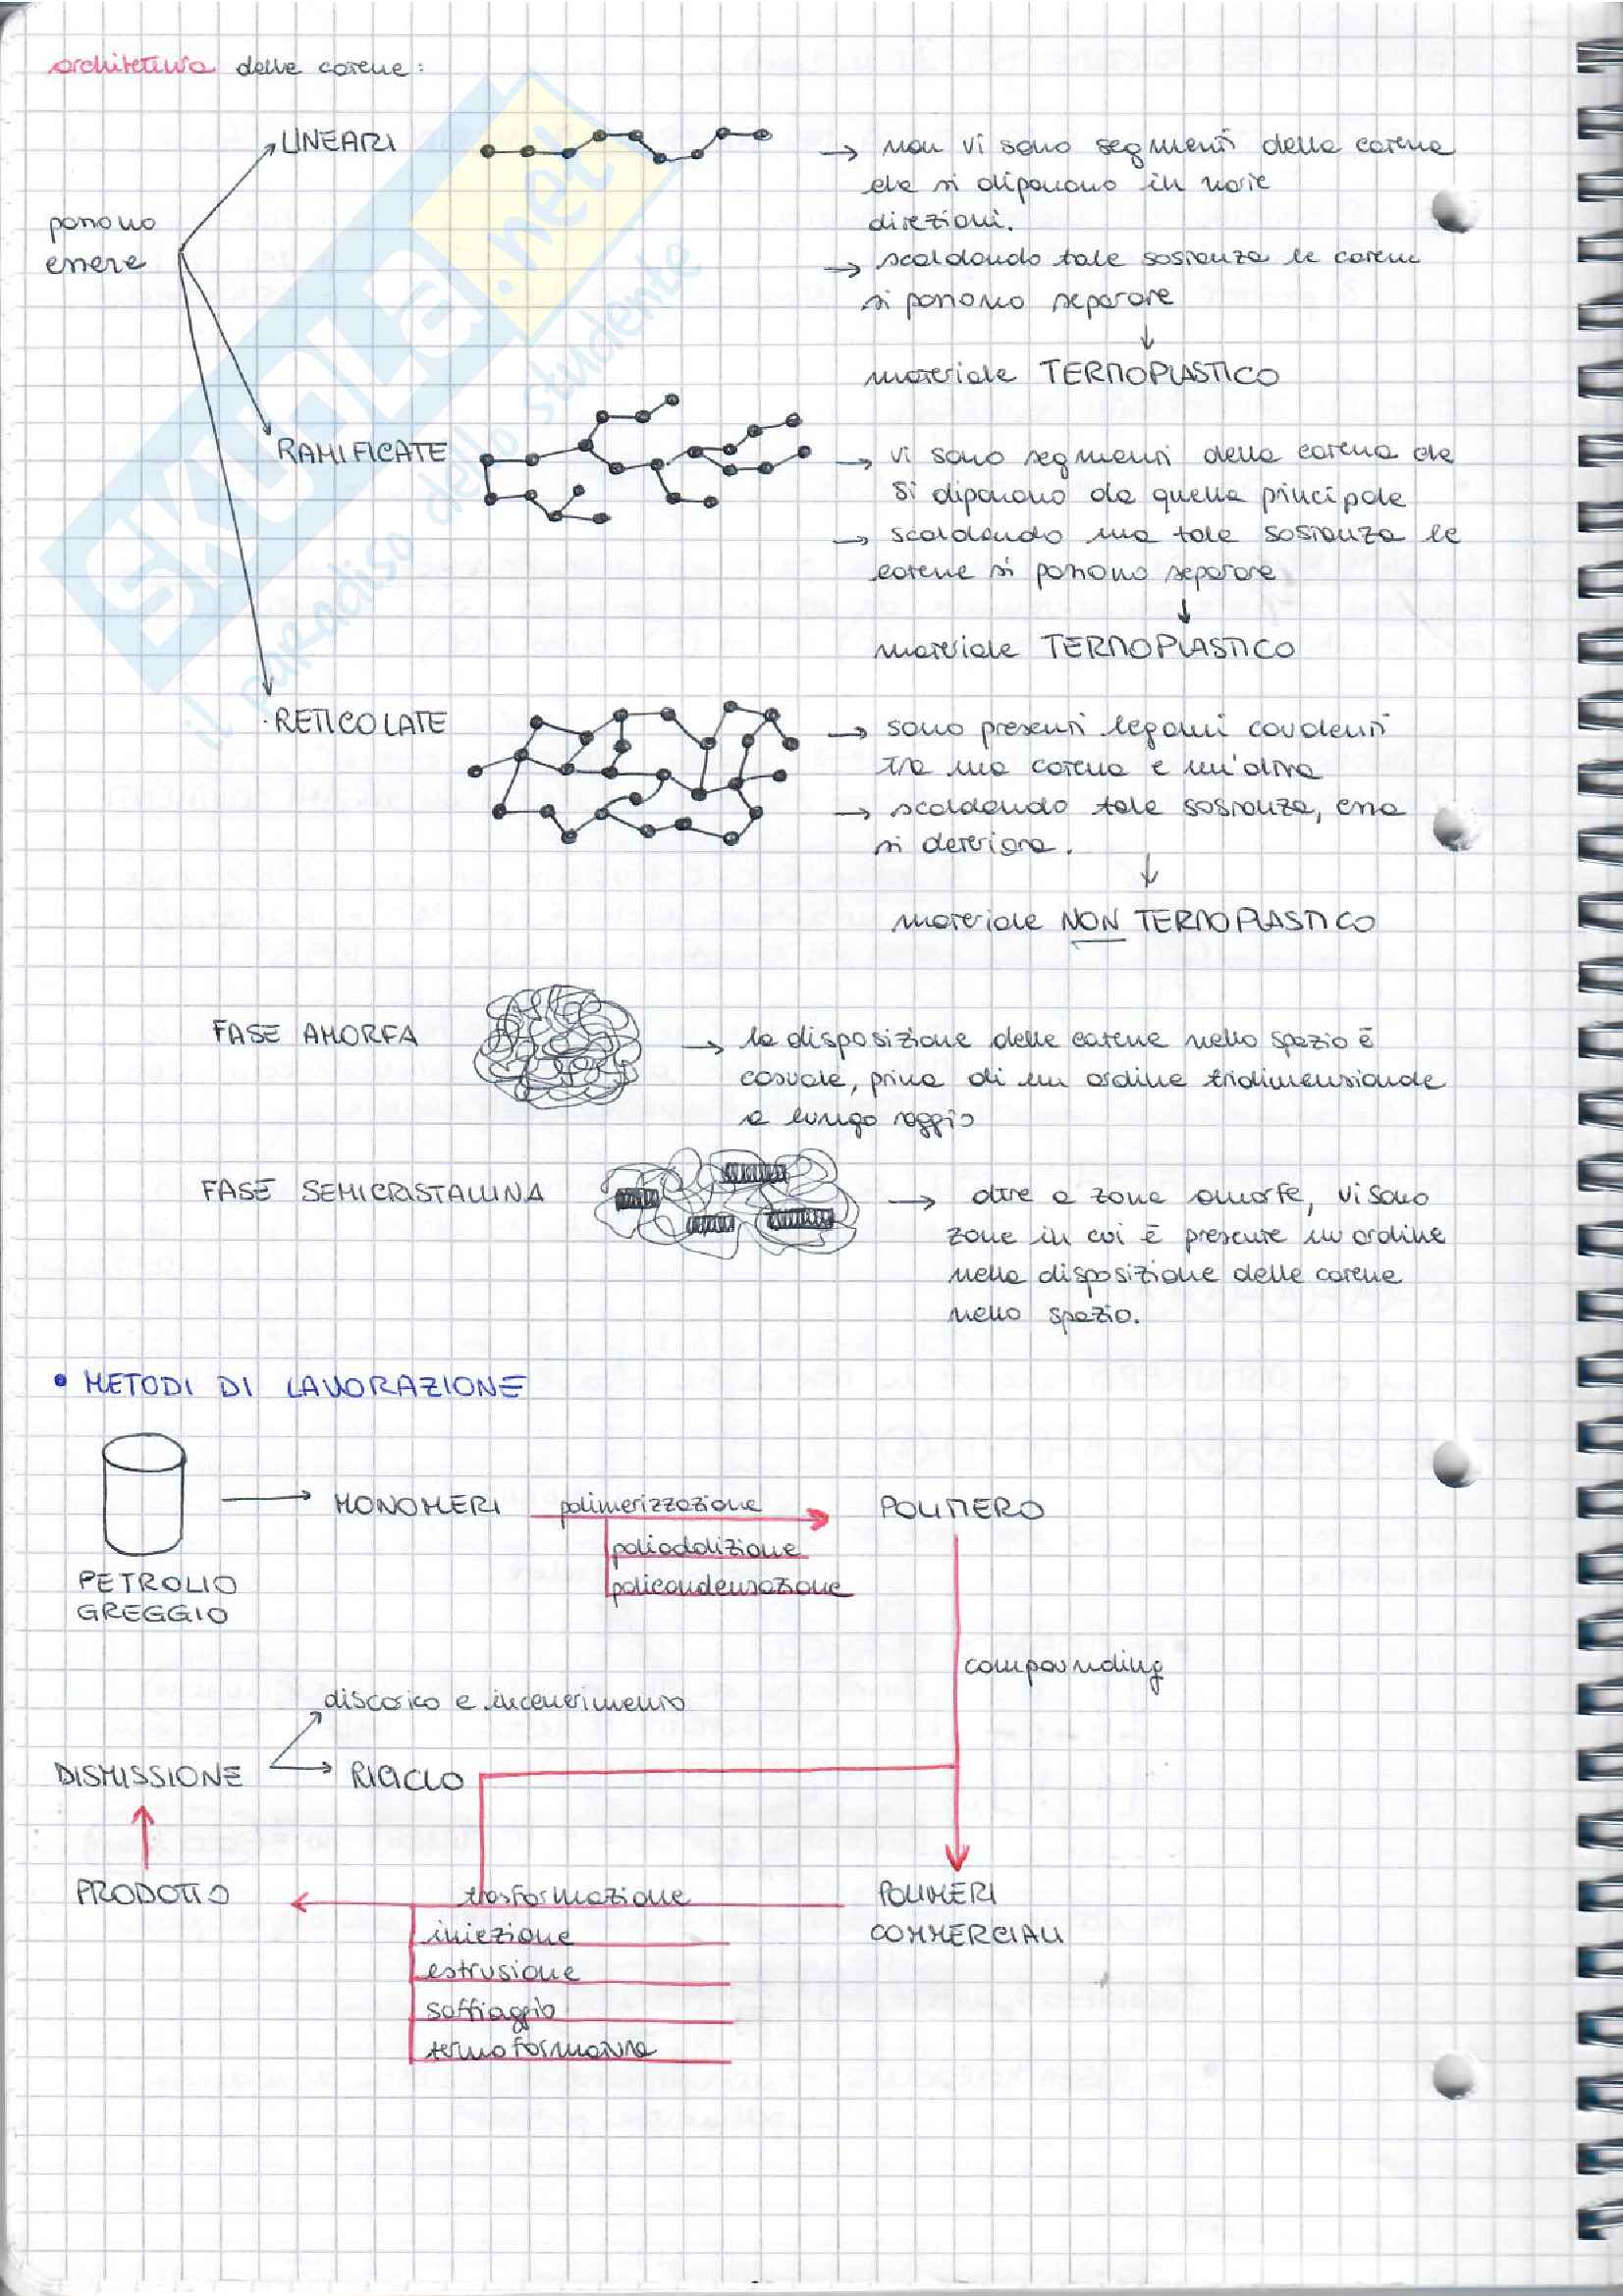 architettura delle catene:
possono
essere
LINEARI
→ non vi sono segmenti della catena
che si dipanano in varie
direzioni.
→ scaldando tale sostanza le catene
si possono separare
↓
materiale TERMOPLASTICO
RAMIFICATE
→ vi sono segmenti della catena che
si dipanano da quella principale
→ scaldando una tale sostanza le
catene si possono separare
↓
materiale TERMOPLASTICO
RETICOLATE
→ sono presenti legami covalenti
tra una catena e un'altra
→ scaldando tale sostanza, essa
si deteriora.
↓
materiale NON TERMOPLASTICO
FASE AMORFA
→ la disposizione delle catene nello spazio è
casuale, priva di un ordine tridimensionale
a lungo raggio
FASE SEMICRISTALLINA
→ oltre a zone amorfe, vi sono
zone in cui è presente un ordine
nella disposizione delle catene
nello spazio.
• METODI DI LAVORAZIONE
PETROLIO
GREGGIO
→ MONOMERI
polimerizzazione
poliaddizione
policondensazione
POLIMERO
compounding
discarica e incenerimento
DISMISSIONE
RICICLO
PRODOTTO
trasformazione
iniezione
estrusione
soffiaggio
termoformatura
POLIMERI
COMMERCIALI
SKUOLA.net
il paradiso dello studente